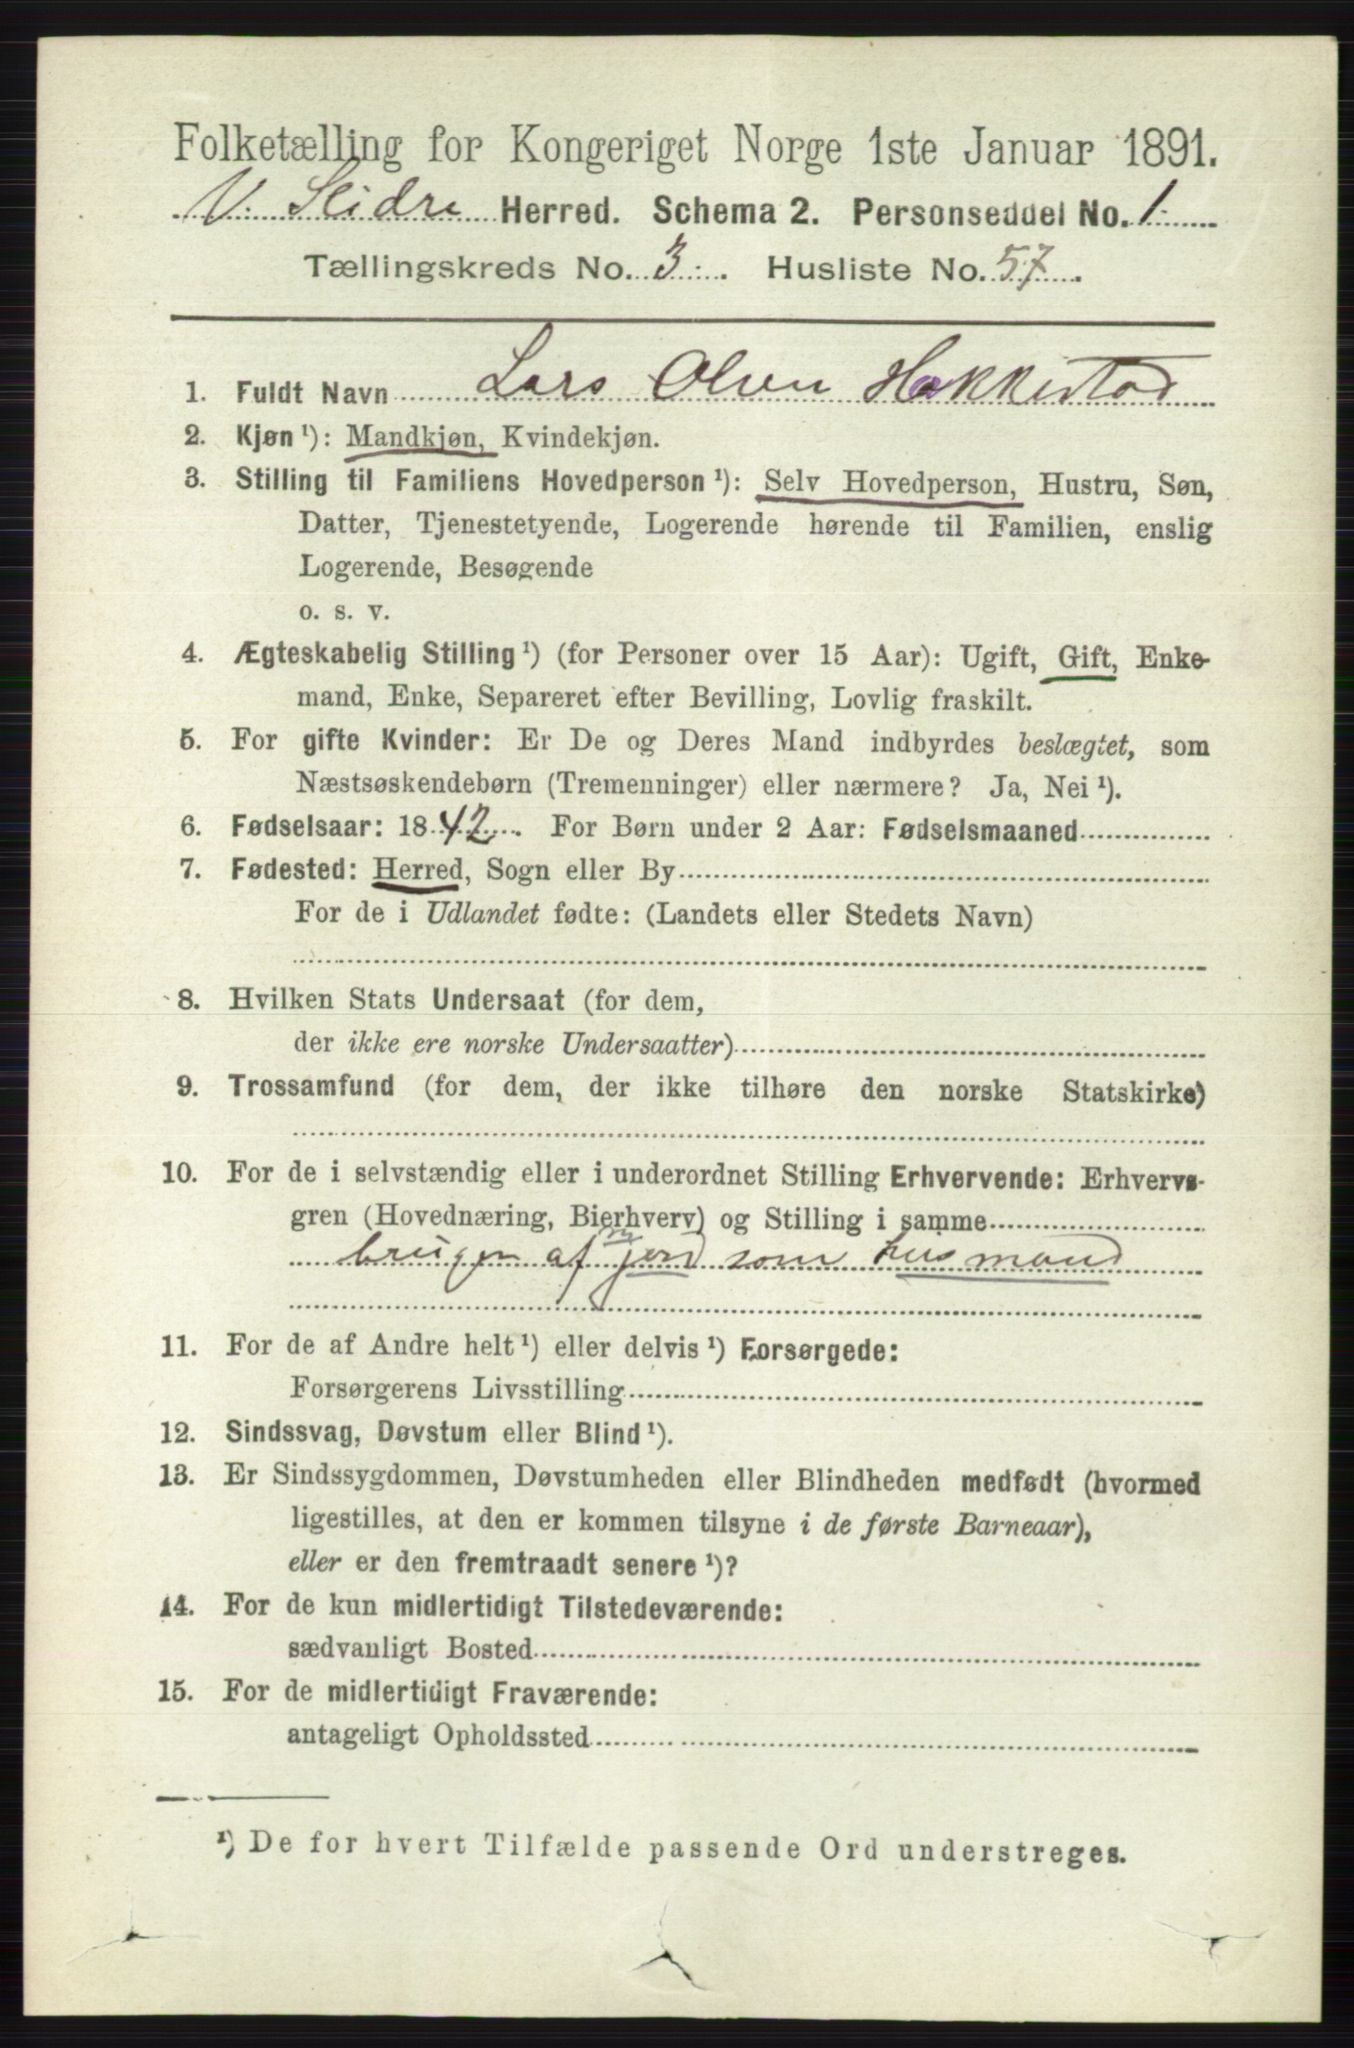 Folketælling for Kongeriget Norge 1ste Januar 1891.
V. Slidre Herred. Schema 2. Personseddel No. 1
Tællingskreds No. 3. Husliste No. 57.
1. Fuldt Navn Lars Olsen Hakkestad
2. Kjøn ¹): Mandkjøn, Kvindekjøn.
3. Stilling til Familiens Hovedperson ¹): Selv Hovedperson, Hustru, Søn,
Datter, Tjenestetyende, Logerende hørende til Familien, enslig
Logerende, Besøgende
o. s. v.
4. Ægteskabelig Stilling ¹) (for Personer over 15 Aar): Ugift, Gift, Enke-
mand, Enke, Separeret efter Bevilling, Lovlig fraskilt.
5. For gifte Kvinder: Er De og Deres Mand indbyrdes beslægtet, som
Næstsøskendebørn (Tremenninger) eller nærmere? Ja, Nei ¹).
6. Fødselsaar: 1842. For Børn under 2 Aar: Fødselsmaaned
7. Fødested: Herred, Sogn eller By
For de i Udlandet fødte: (Landets eller Stedets Navn)
8. Hvilken Stats Undersaat (for dem,
der ikke ere norske Undersaatter)
9. Trossamfund (for dem, der ikke tilhøre den norske Statskirke)
10. For de i selvstændig eller i underordnet Stilling Erhvervende: Erhvervs-
gren (Hovednæring, Bierhverv) og Stilling i samme
bruger af jord som husmand
11. For de af Andre helt ¹) eller delvis ¹) Forsørgede:
Forsørgerens Livsstilling
12. Sindssvag, Døvstum eller Blind ¹).
13. Er Sindssygdommen, Døvstumheden eller Blindheden medfødt (hvormed
ligestilles, at den er kommen tilsyne i de første Barneaar),
eller er den fremtraadt senere ¹)?
14. For de kun midlertidigt Tilstedeværende:
sædvanligt Bosted
15. For de midlertidigt Fraværende:
antageligt Opholdssted
¹) De for hvert Tilfælde passende Ord understreges.